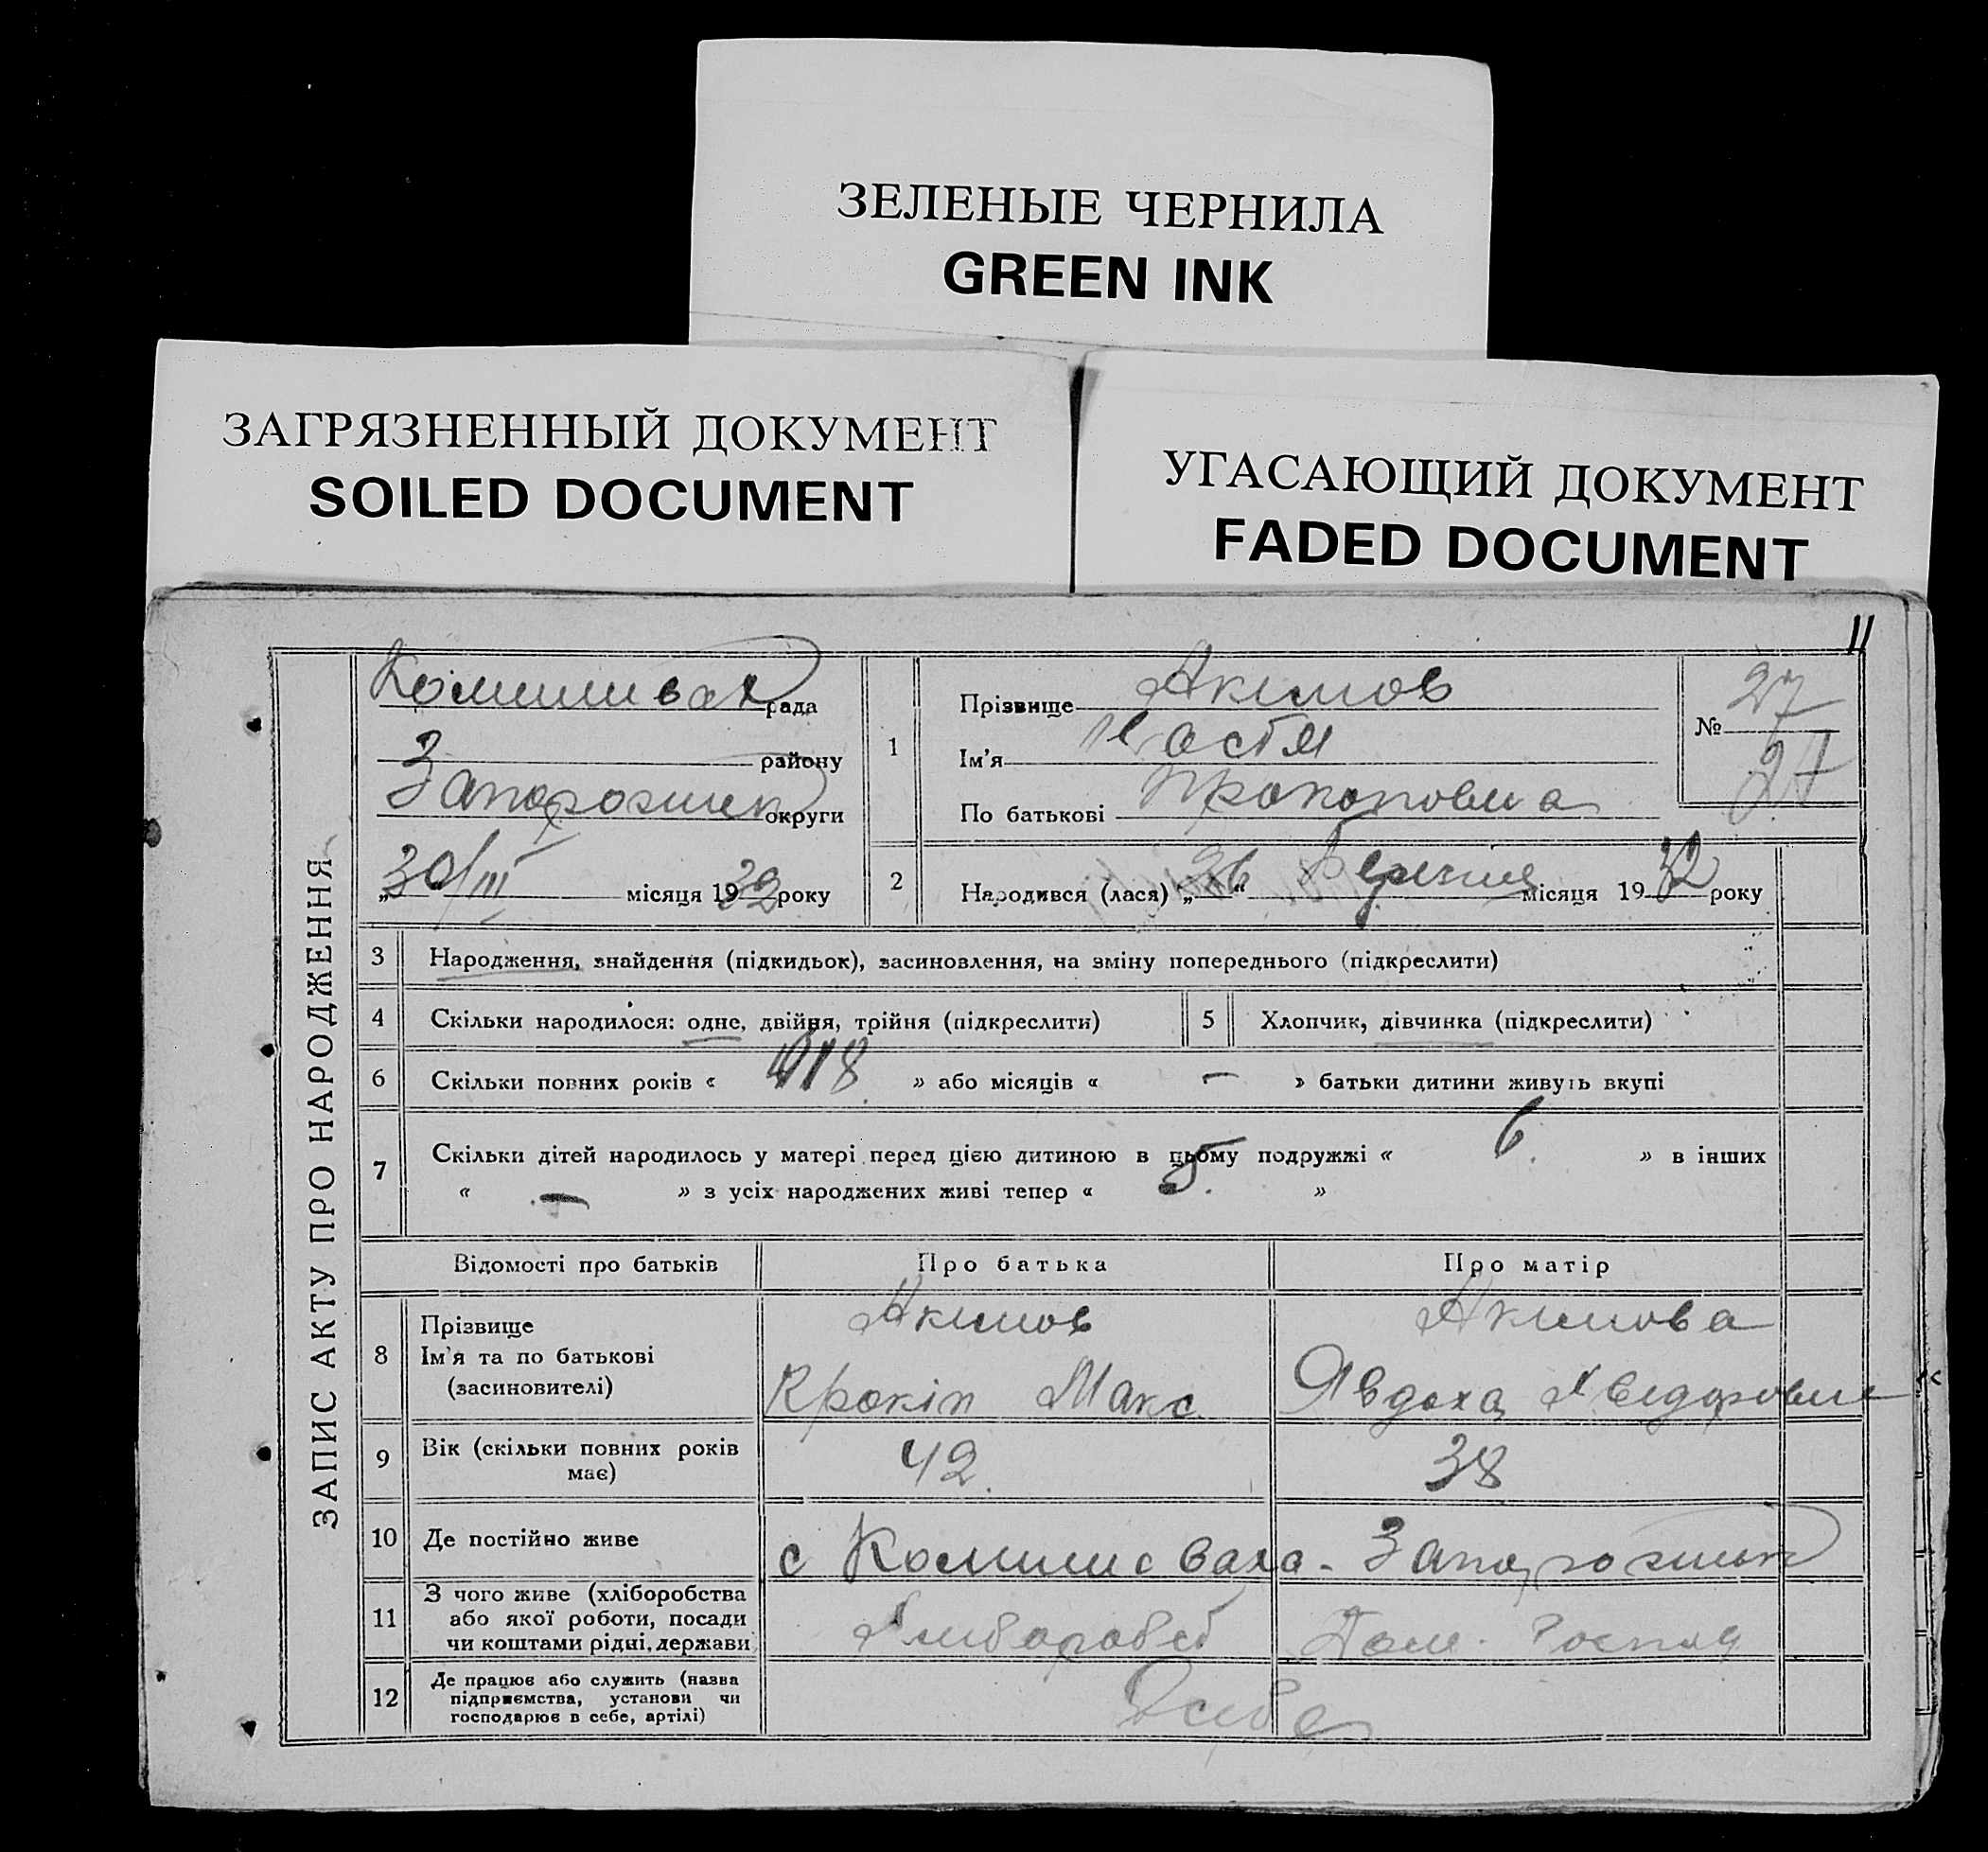 ЗЕЛЕНЫЕ ЧЕРНИЛА
GREEN INK
ЗАГРЯЗНЕННЫЙ ДОКУМЕНТ
SOILED DOCUMENT
УГАСАЮЩИЙ ДОКУМЕНТ
FADED DOCUMENT
11
ЗАПИС АКТУ ПРО НАРОДЖЕННЯ
Комишувах рада
району
Запорожжек округи
„30/III місяця 1932 року
1
Прізвище Акимов
Ім'я Настя
По батькові Прокоповна
№ 27
27
2 Народився (лася) „26“ Березня місяця 1932 року
3 Народження, знайдення (підкидьок), засиновлення, на зміну попереднього (підкреслити)
4 Скільки народилося: одне, двійня, трійня (підкреслити)
5 Хлопчик, дівчинка (підкреслити)
6 Скільки повних років « 18 » або місяців « — » батьки дитини живуть вкупі
7 Скільки дітей народилось у матері перед цією дитиною в цьому подружжі « 6. » в інших
« — » з усіх народжених живі тепер « 5. »
Відомості про батьків Про батька Про матір
8 Прізвище Акимов Акимова
Ім'я та по батькові
(засиновителі) Прокіп Макс. Явдоха
9 Вік (скільки повних років має) 42. 38
10 Де постійно живе с Комишеваха - Запорожжек
11 З чого живе (хліборобства
або якої роботи, посади
чи коштами рідні, держави Хлиборобст Дом. Господ
12 Де працює або служить (назва
підприємства, установи чи
господарює в себе, артілі) У себе